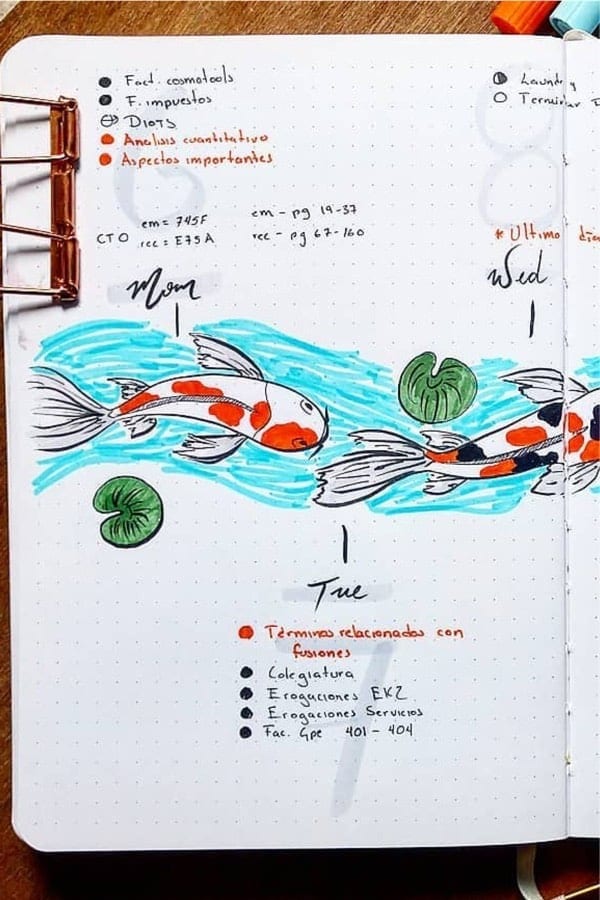 Fact. cosmotools
F. impuestos
DIOTS
Analisis cuantitativo
Aspectos importantes
6
em = 745F
em - pg 19-37
CTO
rec = E75A
rec - pg 67-160
Mon
Laundry
Terminar
8
* Ultimo
Wed
Tue
Términos relacionados con
fusiones
Colegiatura
Erogaciones EKZ
Erogaciones Servicios
Fac. Gpe 401 - 404
7